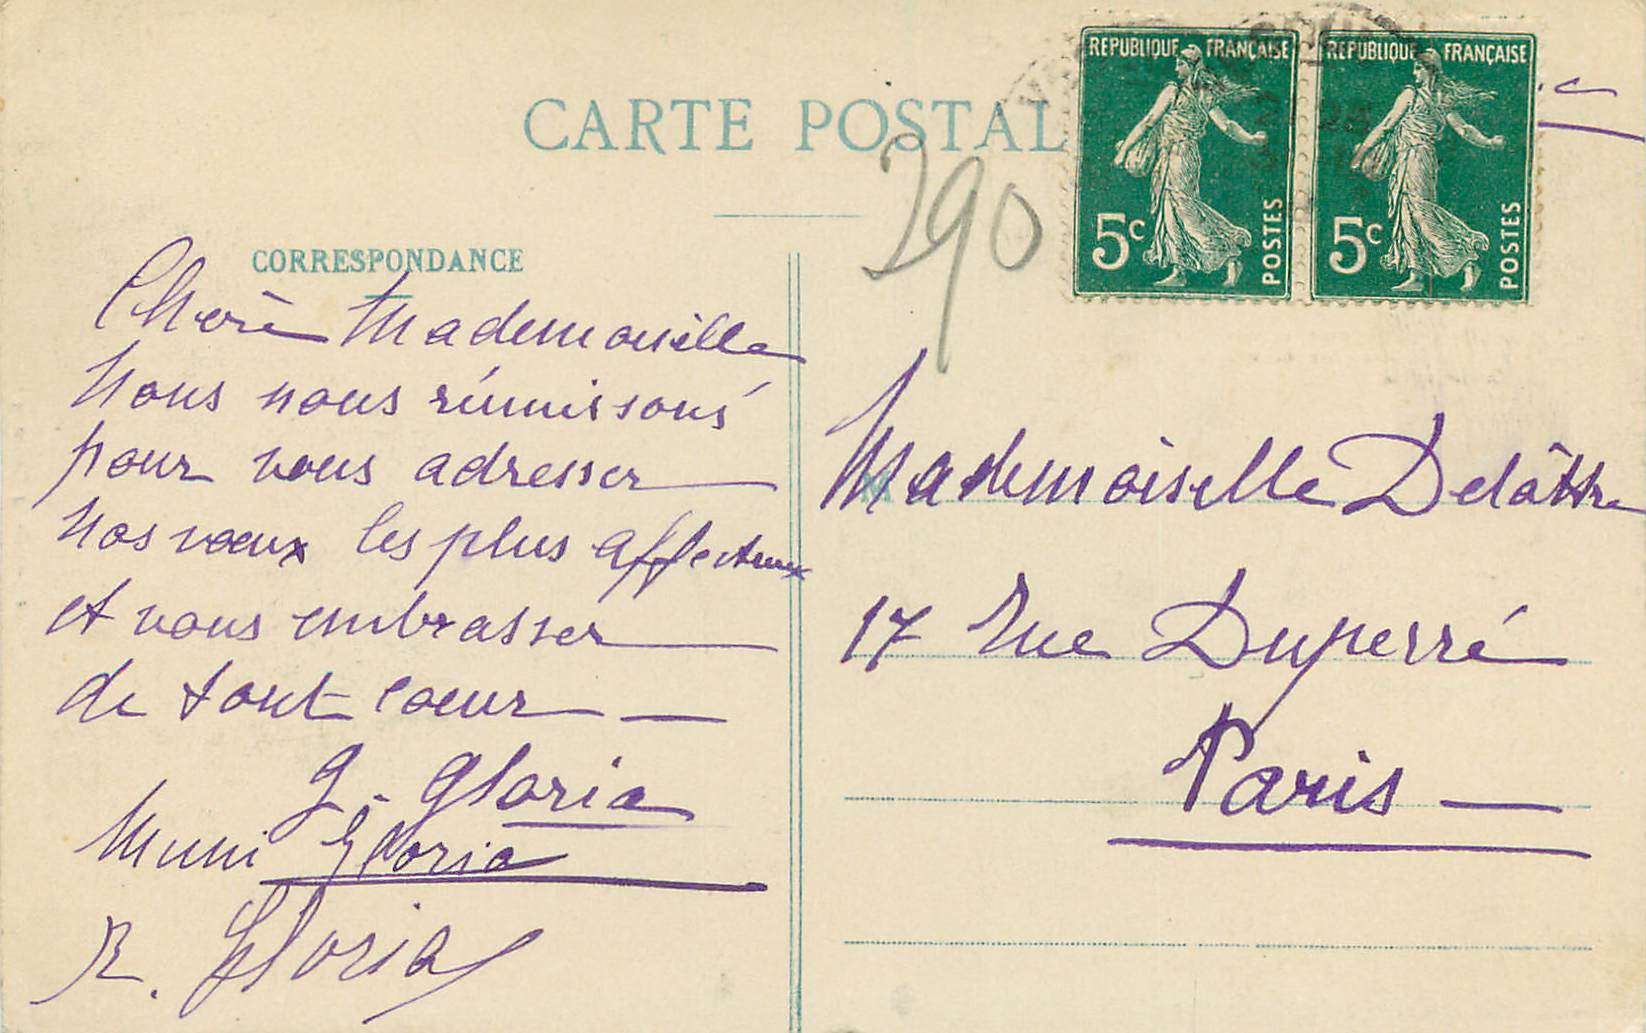 CARTE POSTAL
REPUBLIQUE FRANÇAISE
5c
POSTES
REPUBLIQUE FRANÇAISE
5c
POSTES
290
CORRESPONDANCE
Chère Mademoiselle
Nous nous réunissons
pour vous adresser
nos vœux les plus affectueux
et vous embrasser
de tout cœur
G. Gloria
Mumi Gloria
R. Gloria
Mademoiselle Delâttre
17 Rue Duperré
Paris